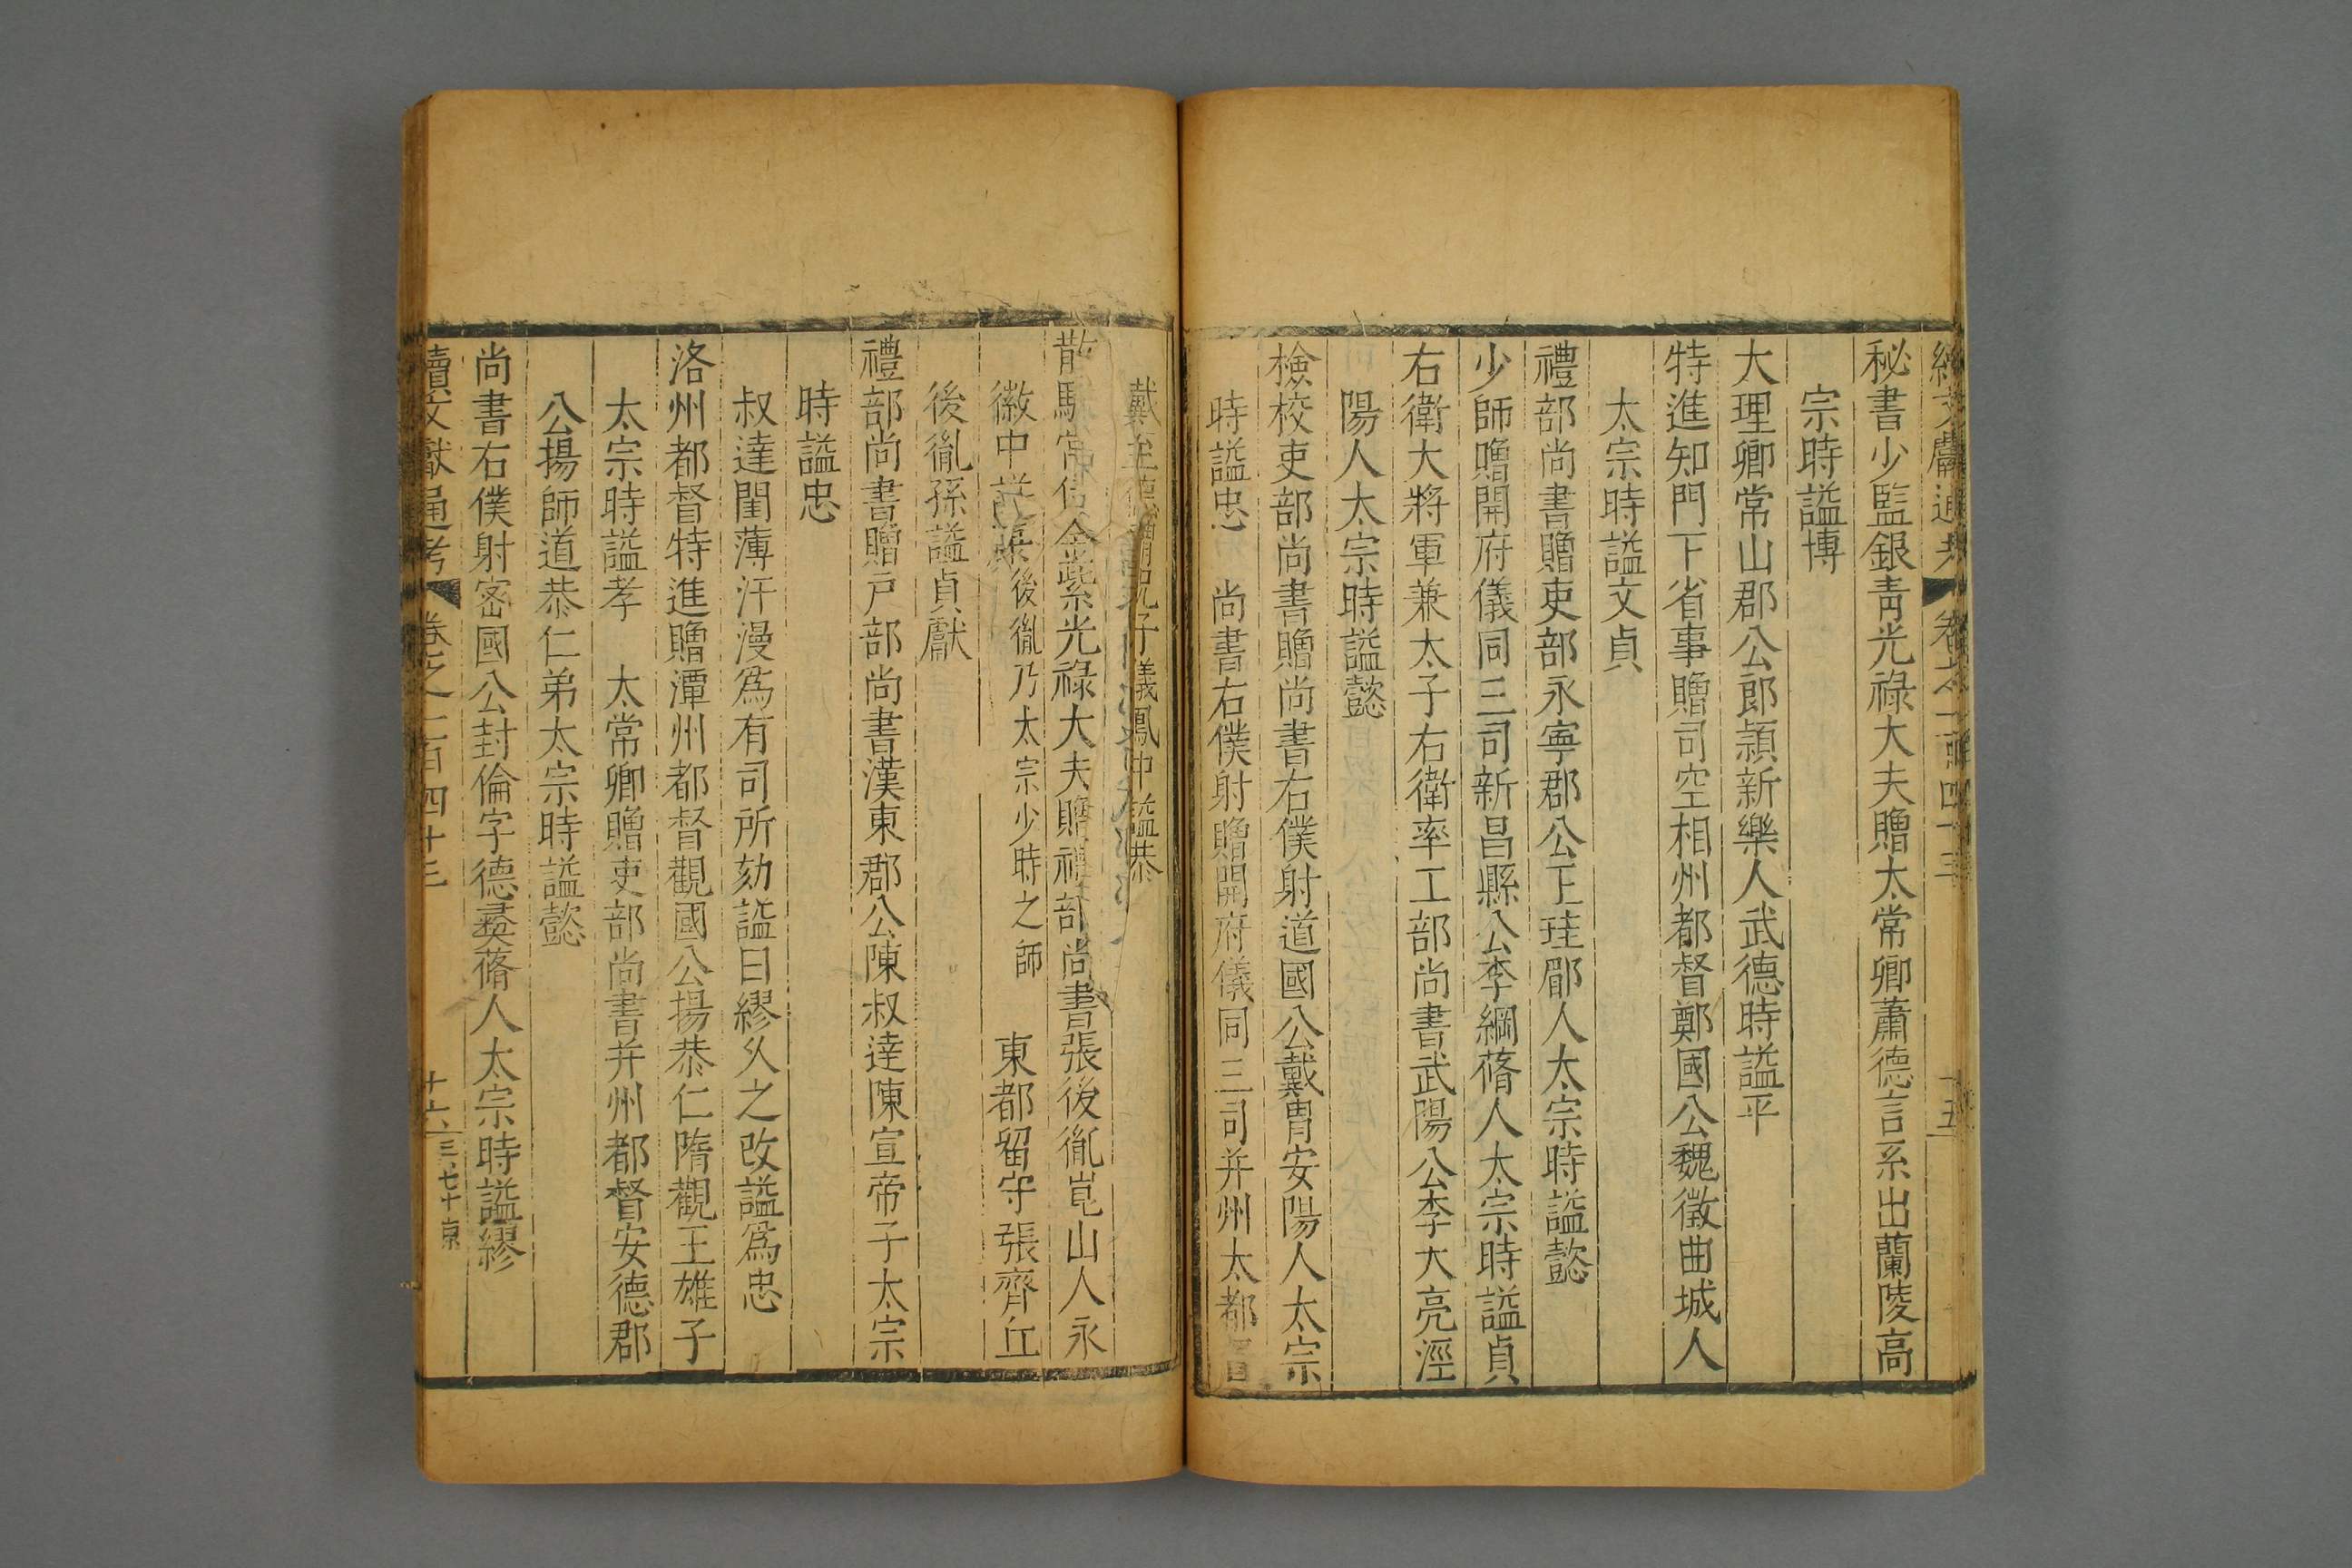 續文獻通考 卷之一百四十三 十五
秘書少監銀青光祿大夫贈太常卿蕭德言系出蘭陵高
宗時謚博
大理卿常山郡公郎頴新樂人武德時謚平
特進知門下省事贈司空相州都督鄭國公魏徵曲城人
太宗時謚文貞
禮部尚書贈吏部永寧郡公王珪郿人太宗時謚懿
少師贈開府儀同三司新昌縣公李綱蓨人太宗時謚貞
右衛大將軍兼太子右衛率工部尚書武陽公李大亮涇
陽人太宗時謚懿
檢校吏部尚書贈尚書右僕射道國公戴胄安陽人太宗
時謚忠 尚書右僕射贈開府儀同三司并州大都督
戴至德胄兄子儀鳳中謚恭
散騎常侍金紫光祿大夫贈禮部尚書張後胤崑山人永
徽中謚康後胤乃太宗少時之師 東都留守張齊丘
後胤孫謚貞獻
禮部尚書贈戶部尚書漢東郡公陳叔達陳宣帝子太宗
時謚忠
叔達閨薄汗漫為有司所劾謚曰繆久之改謚為忠
洛州都督特進贈潭州都督觀國公揚恭仁隋觀王雄子
太宗時謚孝 太常卿贈吏部尚書并州都督安德郡
公揚師道恭仁弟太宗時謚懿
尚書右僕射密國公封倫字德彝蓨人太宗時謚繆
續文獻通考 卷之一百四十三 十六 三七十